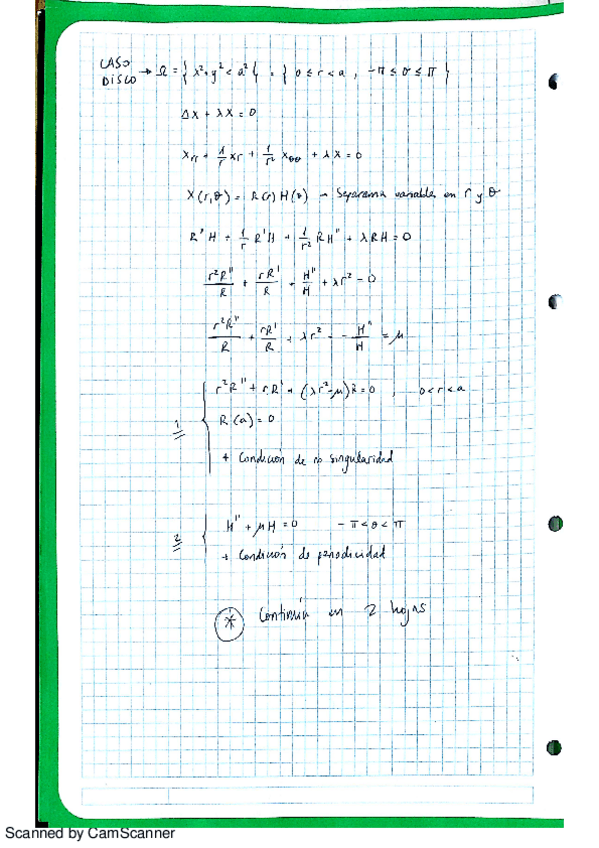 CASO
DISCO → Ω = { x² + y² < a² } = { 0 ≤ r < a , -π ≤ θ ≤ π }
ΔX + λX = 0
Xrr + 1/r Xr + 1/r² Xθθ + λX = 0
X(r,θ) = R(r) H(θ) → Separamos variables en r y θ
R''H + 1/r R'H + 1/r² RH'' + λRH = 0
r²R''/R + rR'/R + H''/H + λr² = 0
r²R''/R + rR'/R + λr² = - H''/H = μ
1 { r²R'' + rR' + (λr² - μ)R = 0 , 0 < r < a
R(a) = 0
+ Condición de no singularidad
2 { H'' + μH = 0 -π < θ < π
+ Condición de periodicidad
* Continúa en 2 hojas
Scanned by CamScanner